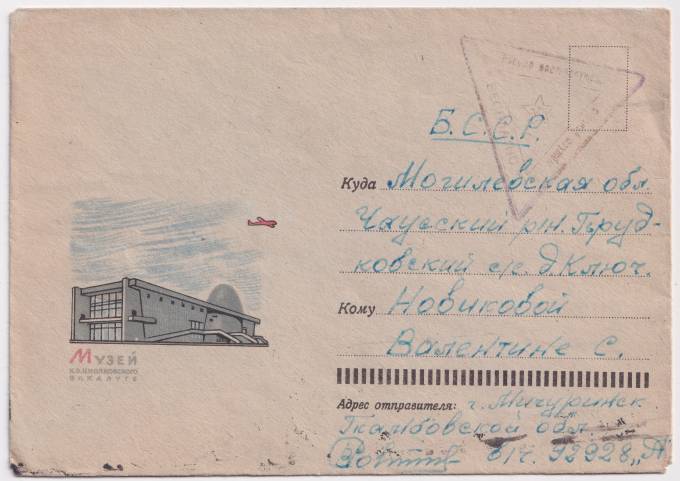 БЕСПЛАТНО
Б.С.С.Р.
Куда Могилевская обл.
Чаусский р/н. Пруд-
ковский с/с. д. Ключ.
Кому Новиковой
Валентине С.
Музей
К.Э. Циолковского
в г. Калуге
Адрес отправителя: г. Мичуринск
Ткамбовской обл
в/ч. 92928 „А"